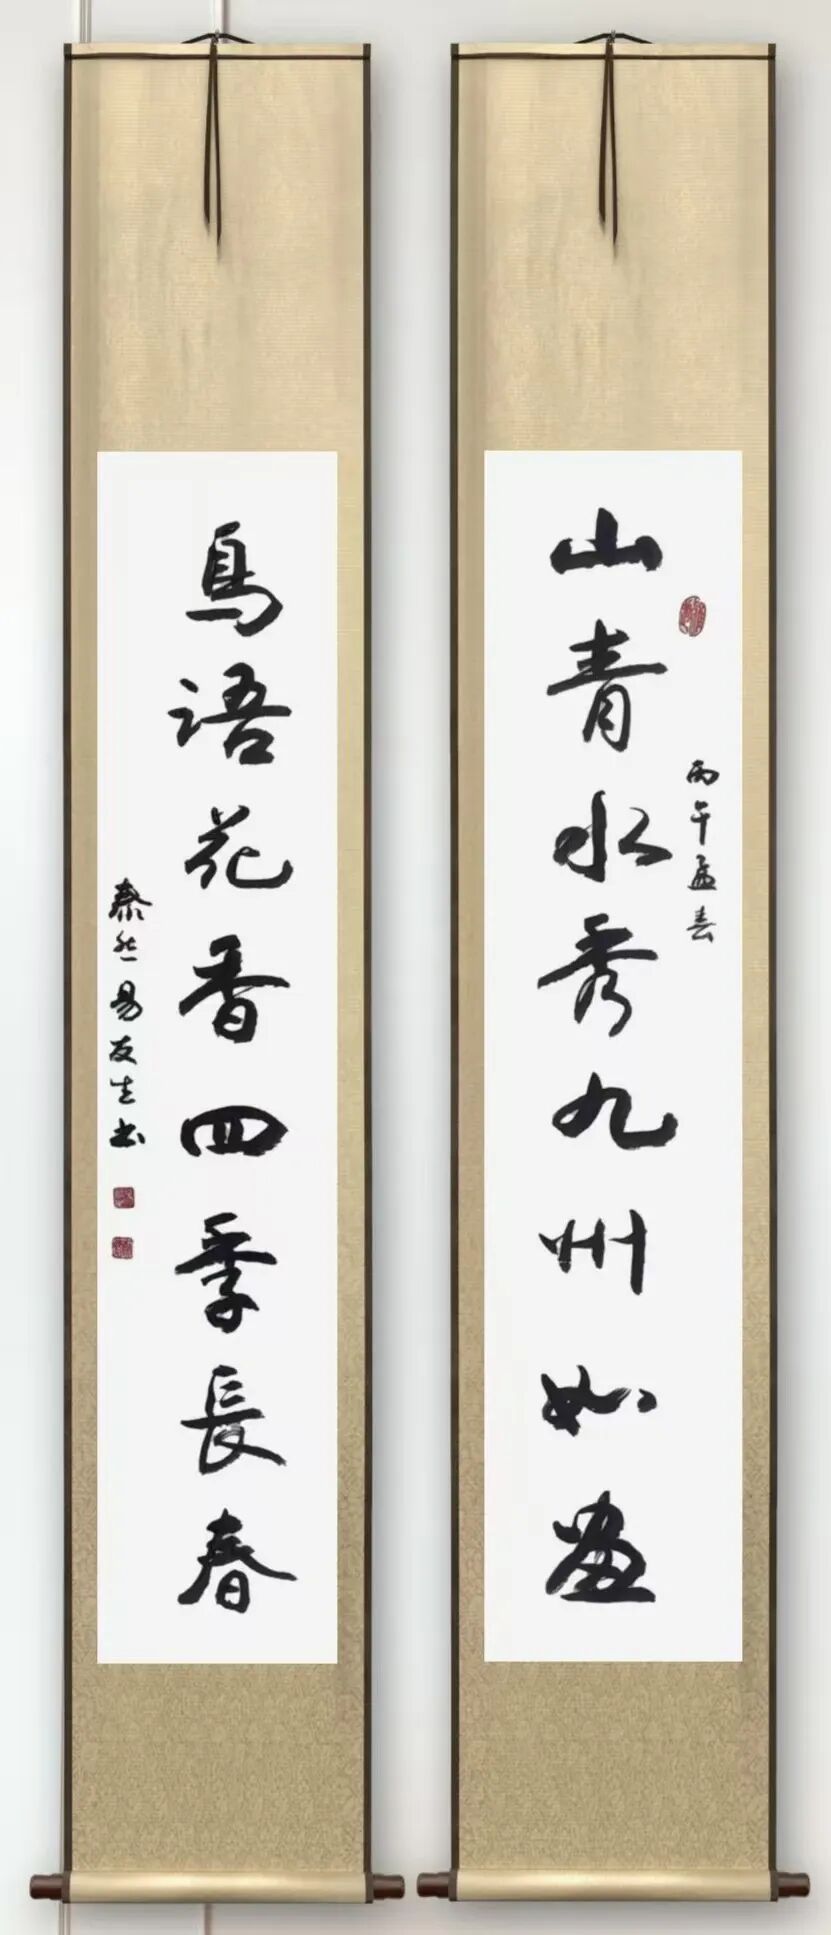 山青水秀九州如画
丙午孟春
鳥语花香四季長春
泰然易友生书